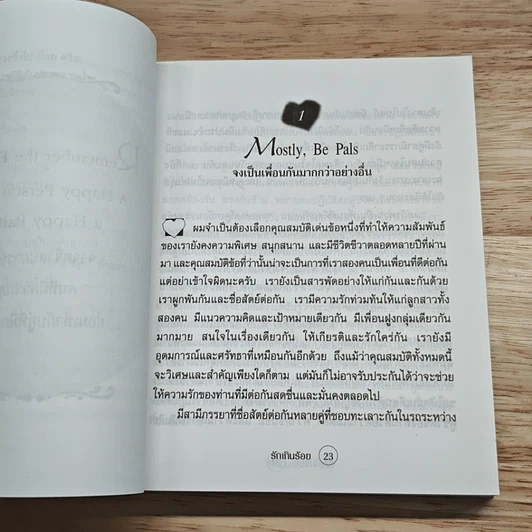 1
Mostly, Be Pals
จงเป็นเพื่อนกันมากกว่าอย่างอื่น
ผมจำเป็นต้องเลือกคุณสมบัติเด่นข้อหนึ่งที่ทำให้ความสัมพันธ์
ของเรายังคงความพิเศษ สนุกสนาน และมีชีวิตชีวาตลอดหลายปีที่ผ่าน
มา และคุณสมบัติข้อที่ว่านั้นน่าจะเป็นการที่เราสองคนเป็นเพื่อนที่ดีต่อกัน
แต่อย่าเข้าใจผิดนะครับ เรายังเป็นสารพัดอย่างให้แก่กันและกันด้วย
เราผูกพันกันและซื่อสัตย์ต่อกัน เรามีความรักท่วมท้นให้แก่ลูกสาวทั้ง
สองคน มีแนวความคิดและเป้าหมายเดียวกัน มีเพื่อนฝูงกลุ่มเดียวกัน
มากมาย สนใจในเรื่องเดียวกัน ให้เกียรติและรักใคร่กัน เรายังมี
อุดมการณ์และศรัทธาที่เหมือนกันอีกด้วย ถึงแม้ว่าคุณสมบัติทั้งหมดนี้
จะวิเศษและสำคัญเพียงใดก็ตาม แต่มันก็ไม่อาจรับประกันได้ว่าจะช่วย
ให้ความรักของท่านที่มีต่อกันสดชื่นและมั่นคงตลอดไป
มีสามีภรรยาที่ซื่อสัตย์ต่อกันหลายคู่ที่ชอบทะเลาะกันในรถระหว่าง
รักเกินร้อย 23